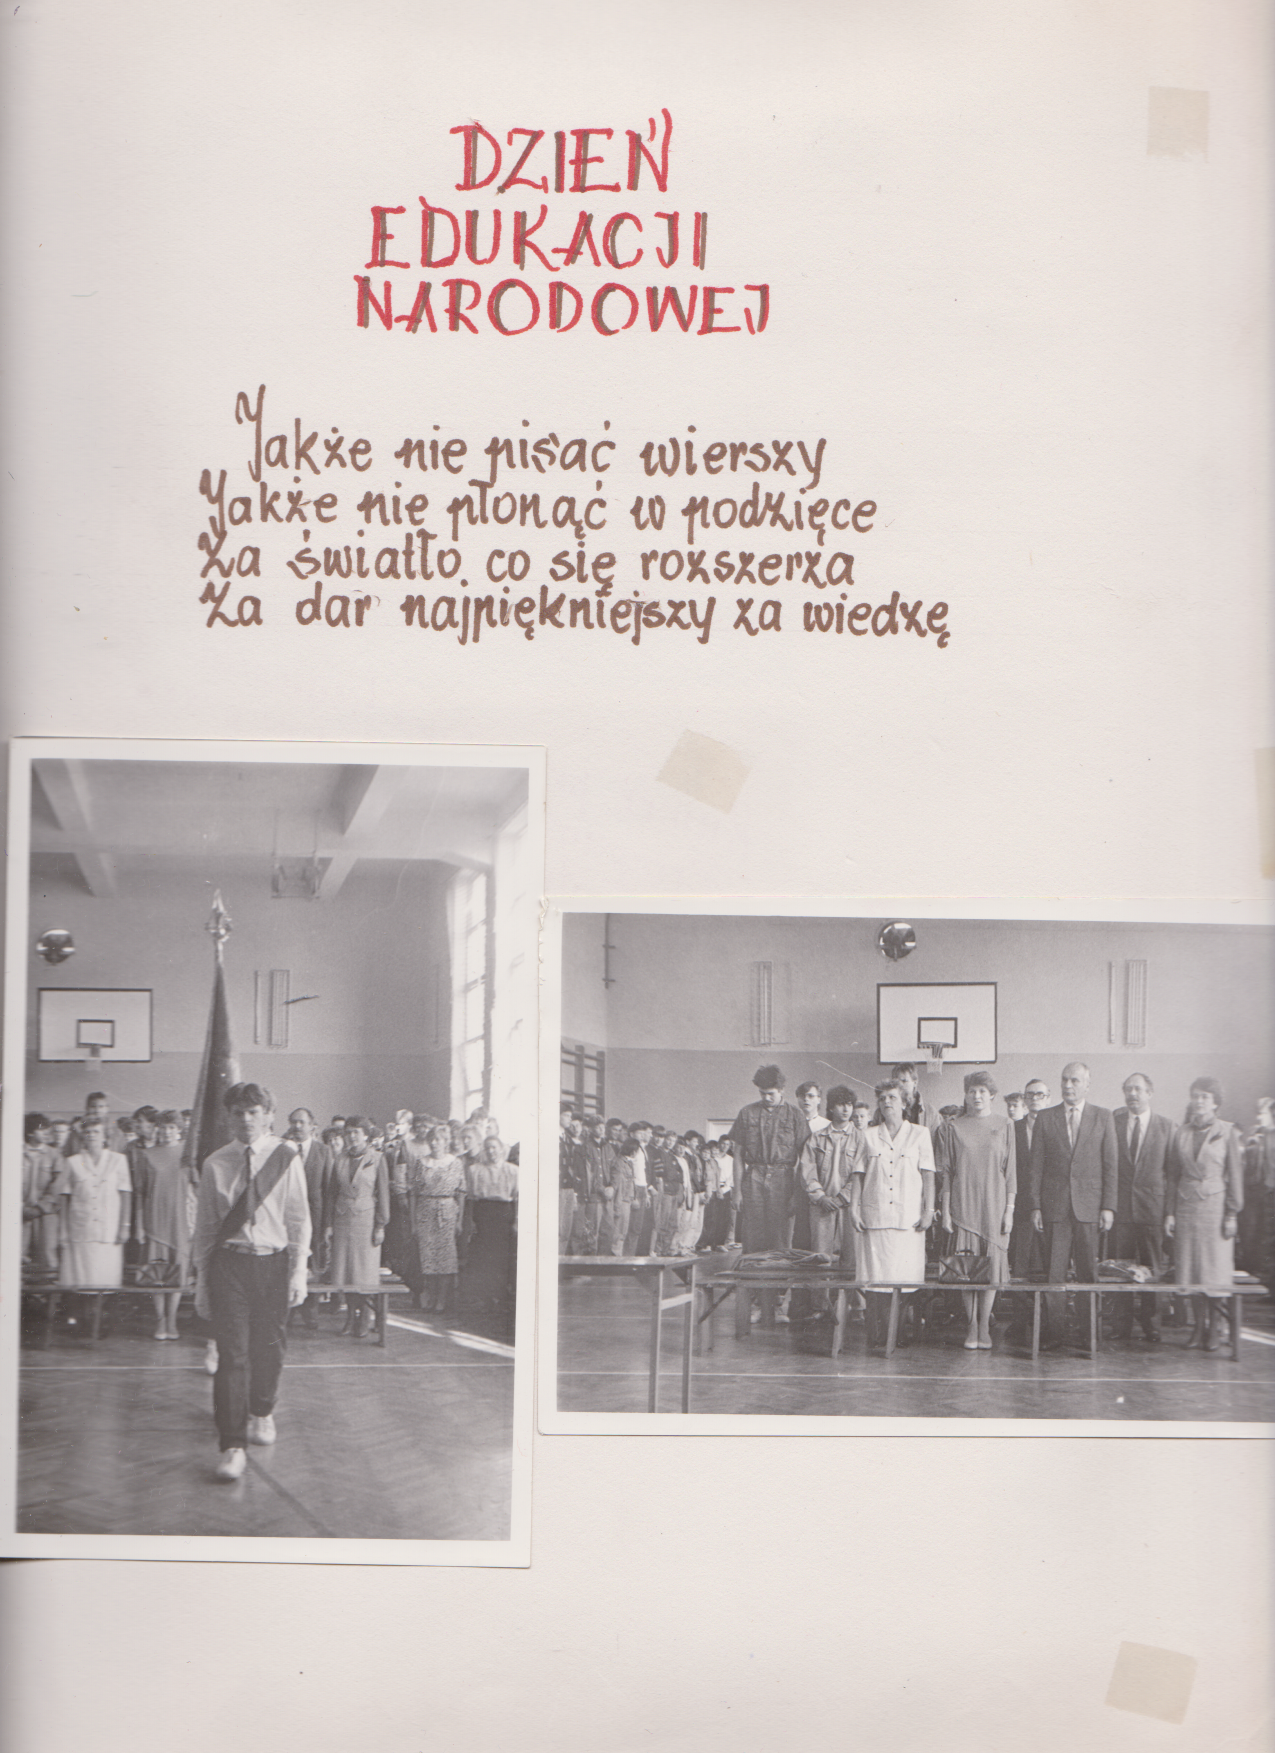 DZIEŃ
EDUKACJI
NARODOWEJ
Jakże nie pisać wierszy
Jakże nie płonąć w podzięce
Za światło co się rozszerza
Za dar najpiękniejszy za wiedzę